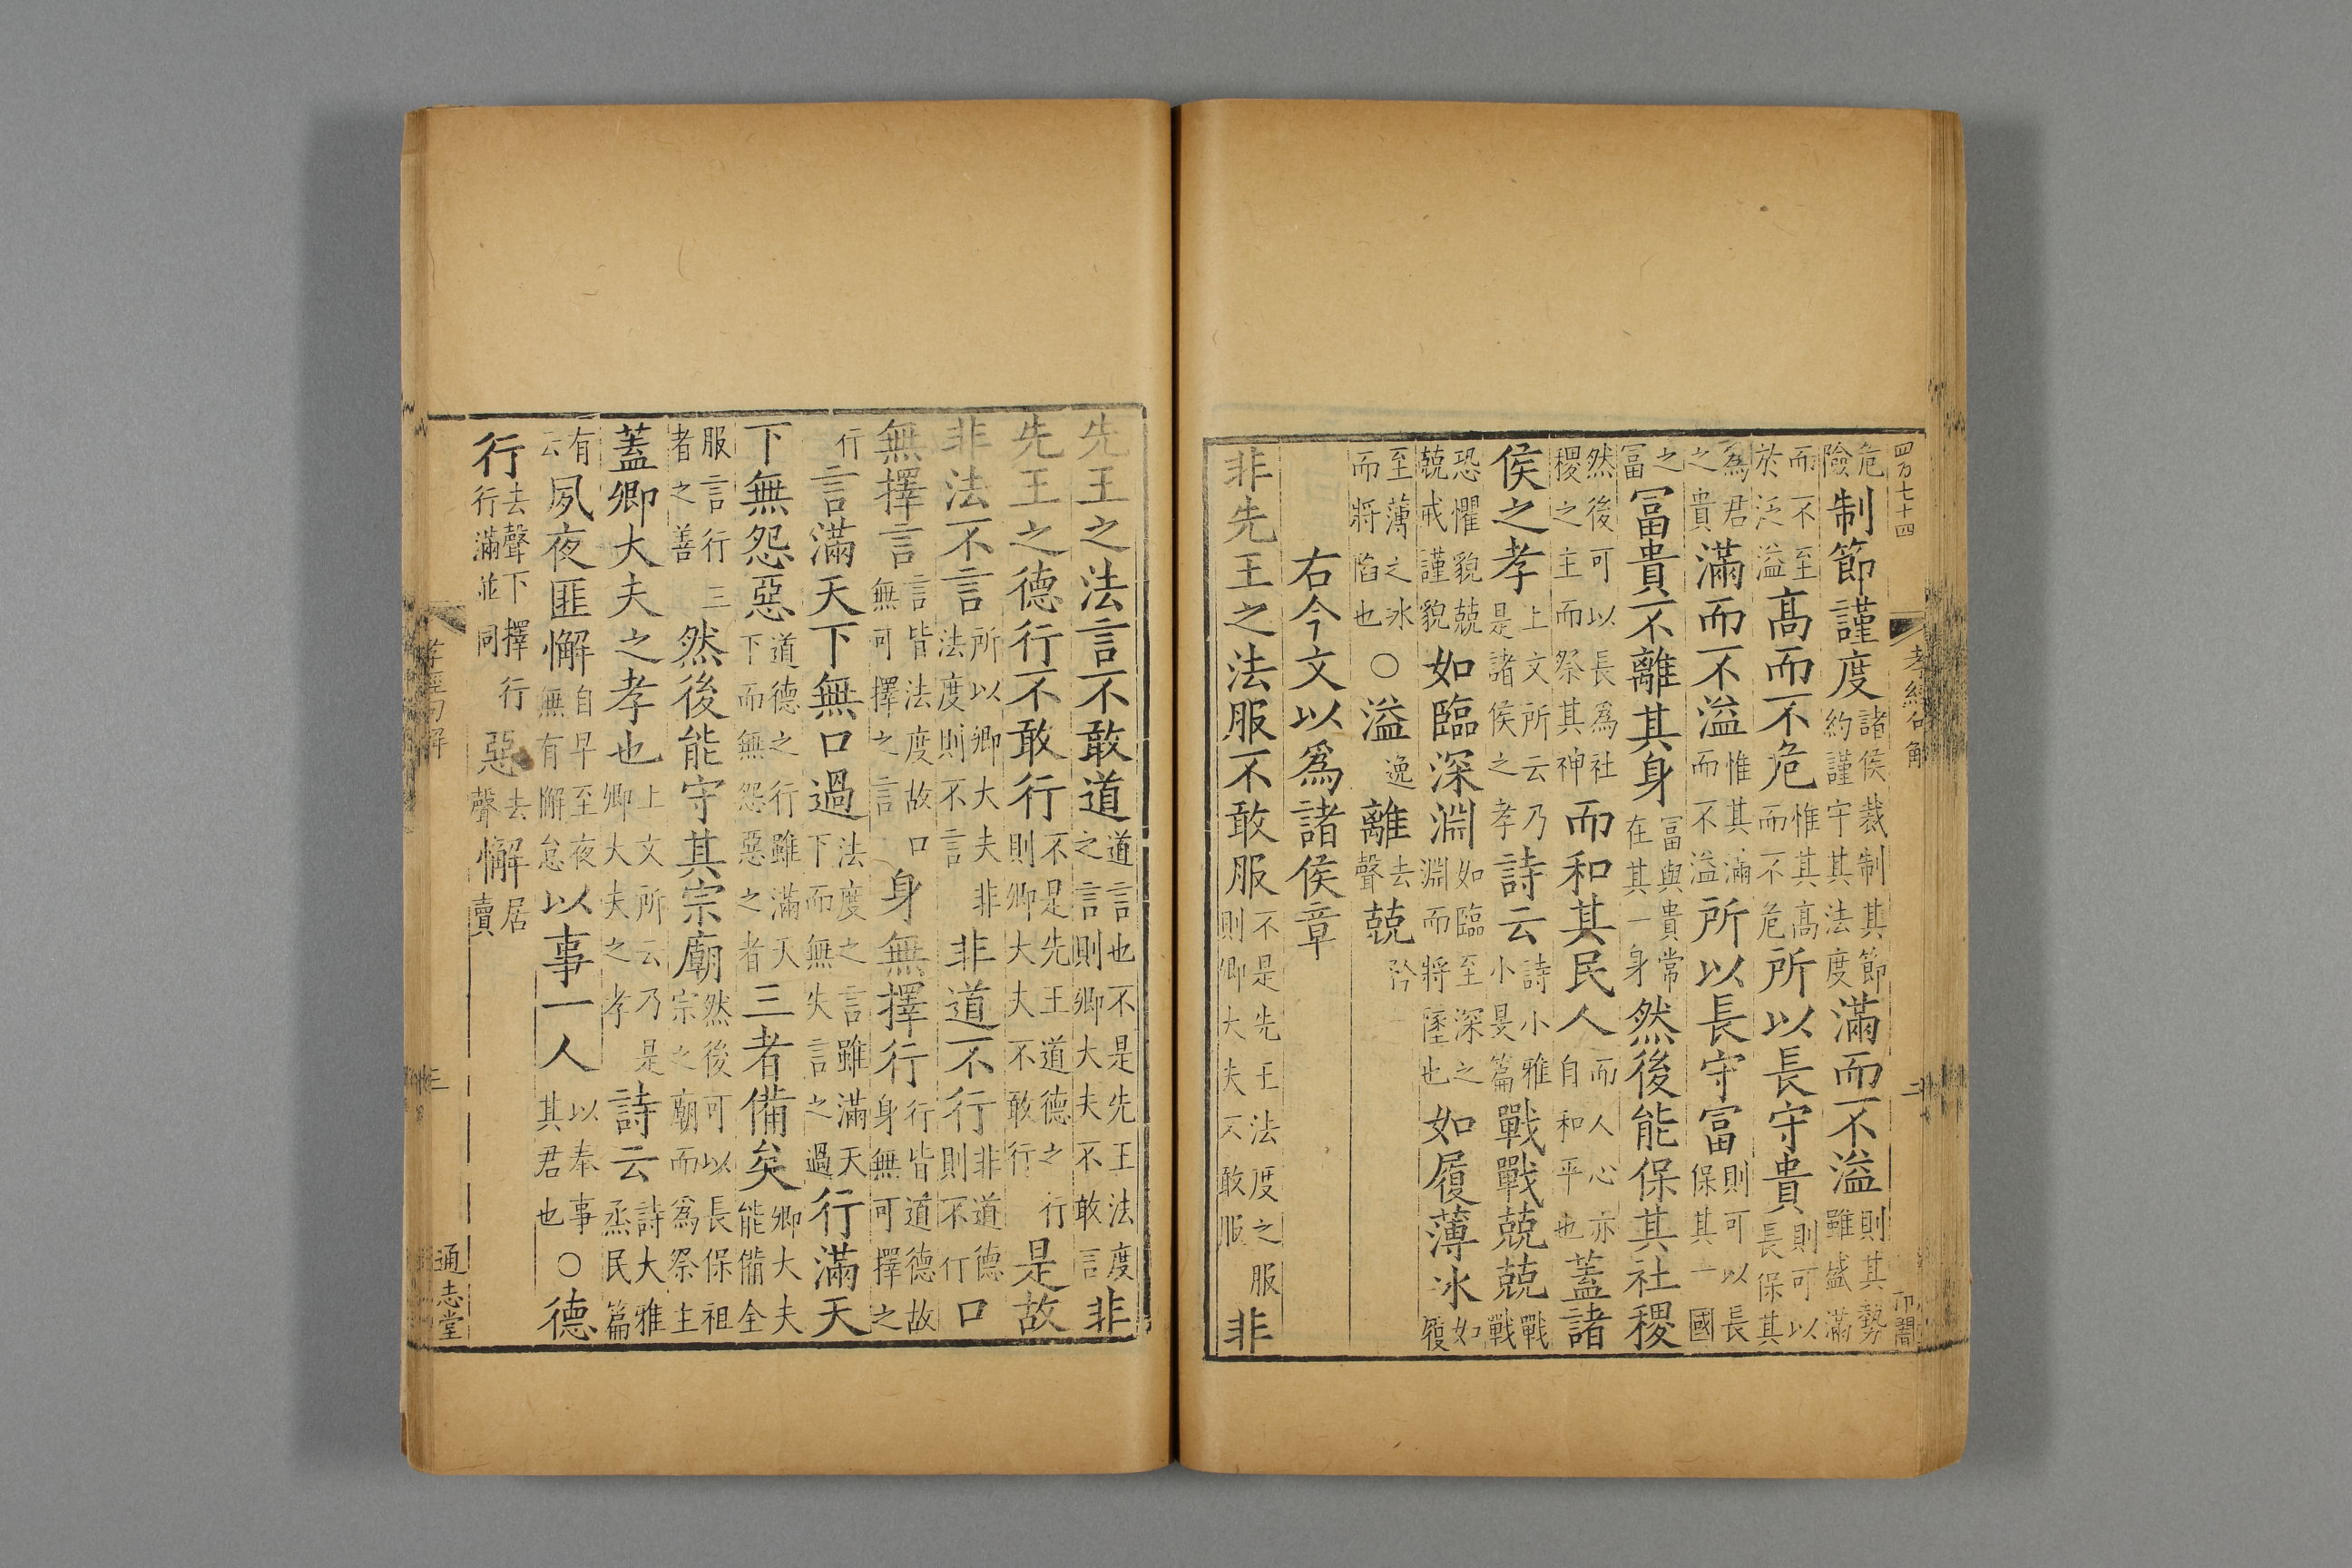 四百七十四 孝經句解 二
危險制節謹度諸侯裁制其節約謹守其法度滿而不溢則其勢雖盛滿
而不至於泛溢高而不危惟其高而不危所以長守貴則可以長保其
為君之貴滿而不溢惟其滿而不溢所以長守冨則可以長保其一國
之冨冨貴不離其身冨與貴常在其一身然後能保其社稷
然後可以長爲社稷之主而祭其神而和其民人而人心亦自和平也蓋諸
侯之孝上文所云乃是諸侯之孝詩云詩小雅小旻篇戰戰兢兢戰戰
恐懼貌兢兢戒謹貌如臨深淵如臨至深之淵而將墜也如履薄冰如履
至薄之冰而將陷也○溢逸離去聲兢矜
右今文以爲諸侯章
非先王之法服不敢服不是先王法度之服則卿大夫不敢服非
先王之法言不敢道道言也不是先王法度之言則卿大夫不敢言非
先王之德行不敢行不是先王道德之行則卿大夫不敢行是故
非法不言所以卿大夫非法度則不言非道不行非道德則不行口
無擇言言皆法度故口無可擇之言身無擇行行皆道德故身無可擇之
行言滿天下無口過法度之言雖滿天下而無失言之過行滿天
下無怨惡道德之行雖滿天下而無怨惡之者三者備矣卿大夫能備全
服言行三者之善然後能守其宗廟然後可以長保祖宗之廟而爲祭主
蓋卿大夫之孝也上文所云乃是卿大夫之孝詩云詩大雅烝民篇
有云夙夜匪懈自早至夜無有懈怠以事一人以奉事其君也○德
行去聲下擇行行滿並同惡去聲懈居賣
孝經句解 三 通志堂